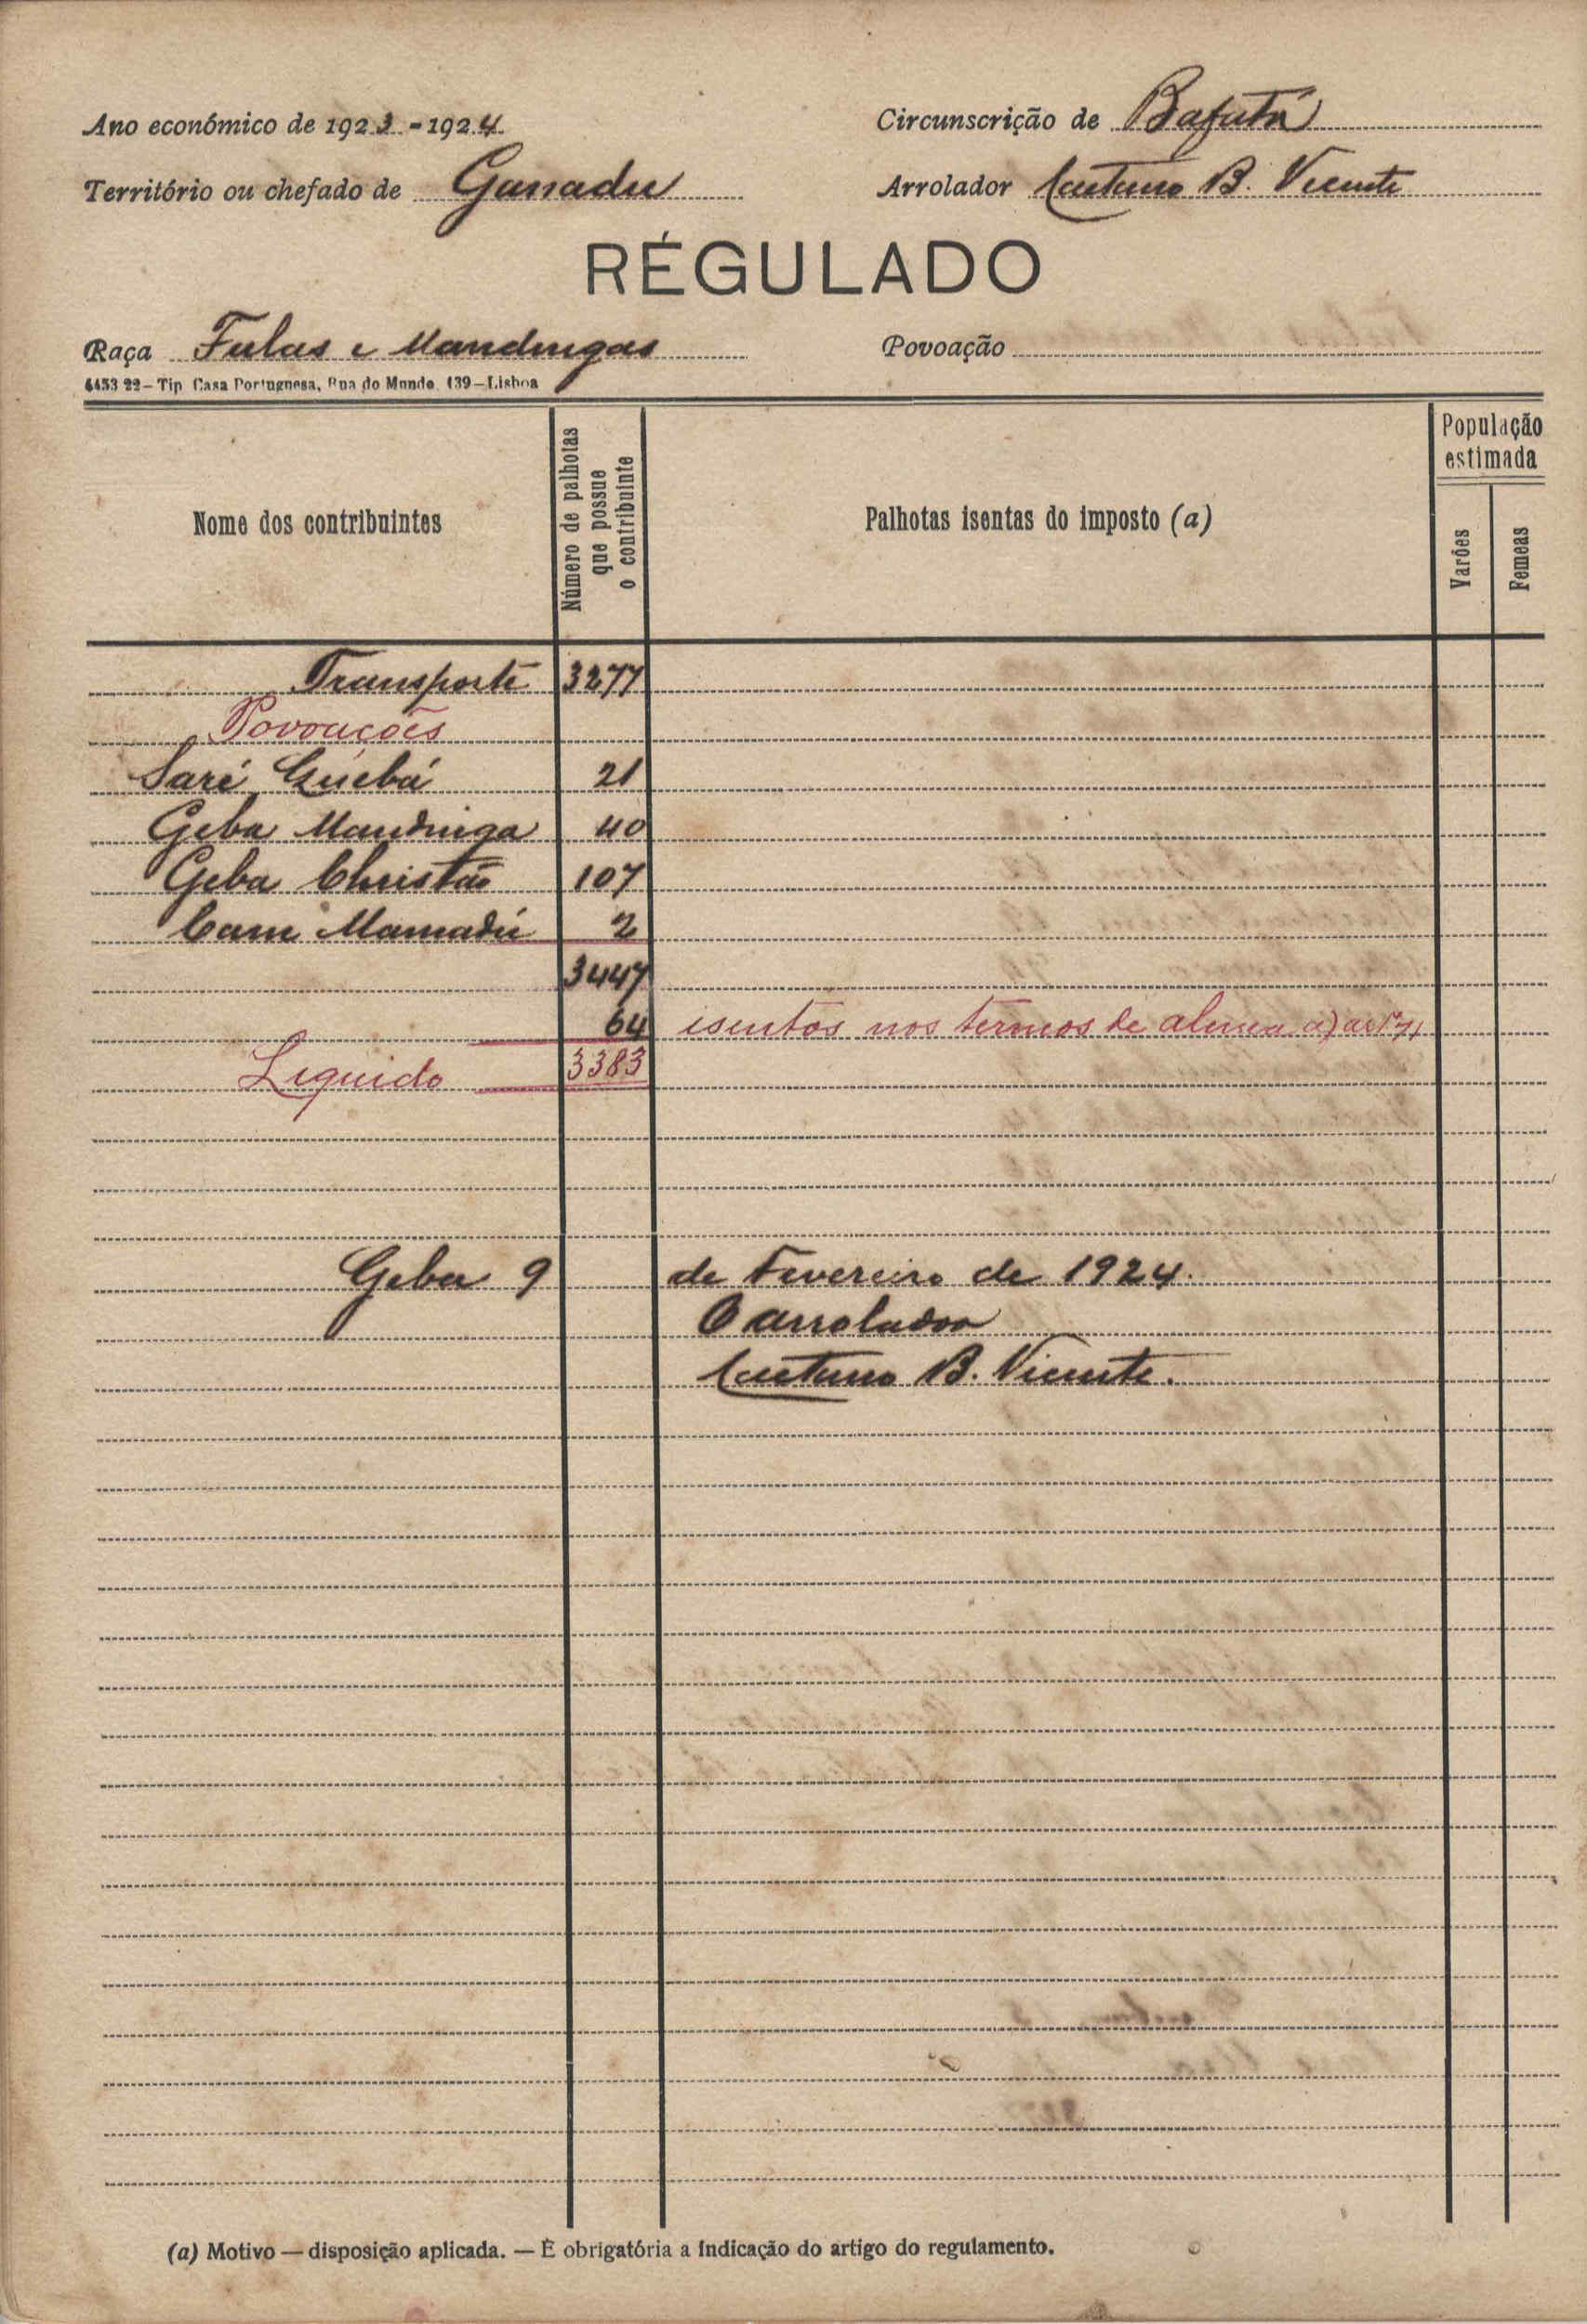 Ano económico de 1923-1924
Circunscrição de Bafatá
Território ou chefado de Ganadu
Arrolador Caetano B. Vicente
RÉGULADO
Raça Fulas e Mandingas
Povoação
6453 22—Tip. Casa Portuguesa, Rua do Mundo, 139—Lisboa
Nome dos contribuintes
Número de palhotas que possue o contribuinte
Palhotas isentas do imposto (a)
População estimada
Varões
Femeas
Transporte 3277
Povoações
Saré Guebá 21
Geba Mandinga 40
Geba Christão 107
Cam Mamadú 2
3447
64 isentos nos termos de alinea a) artº 71
Liquido 3383
Geba 9 de Fevereiro de 1924.
O arrolador
Caetano B. Vicente.
(a) Motivo — disposição aplicada. — É obrigatória a indicação do artigo do regulamento.